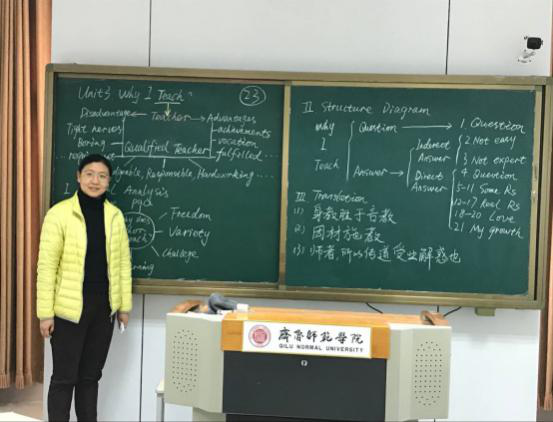 Unit3 Why I Teach
23
Teacher
Disadvantage
Advantages
Tight nerves
achievements
Boring
vocation
fulfilled
Qualified Teacher
Responsible, Hardworking
Analysis
Freedom
Variety
Challege
II Structure Diagram
Why
I
Teach
Question
Answer
Indirect
Answer
Direct
Answer
1. Question
2 Not easy
3 Not expert
4 Question
5-11 Some Rs
12-17 Real Rs
18-20 Love
21 My growth
III Translation
(1) 身教胜于言教
(2) 因材施教
(3) 师者,所以传道受业解惑也
齐鲁师范学院
QILU NORMAL UNIVERSITY